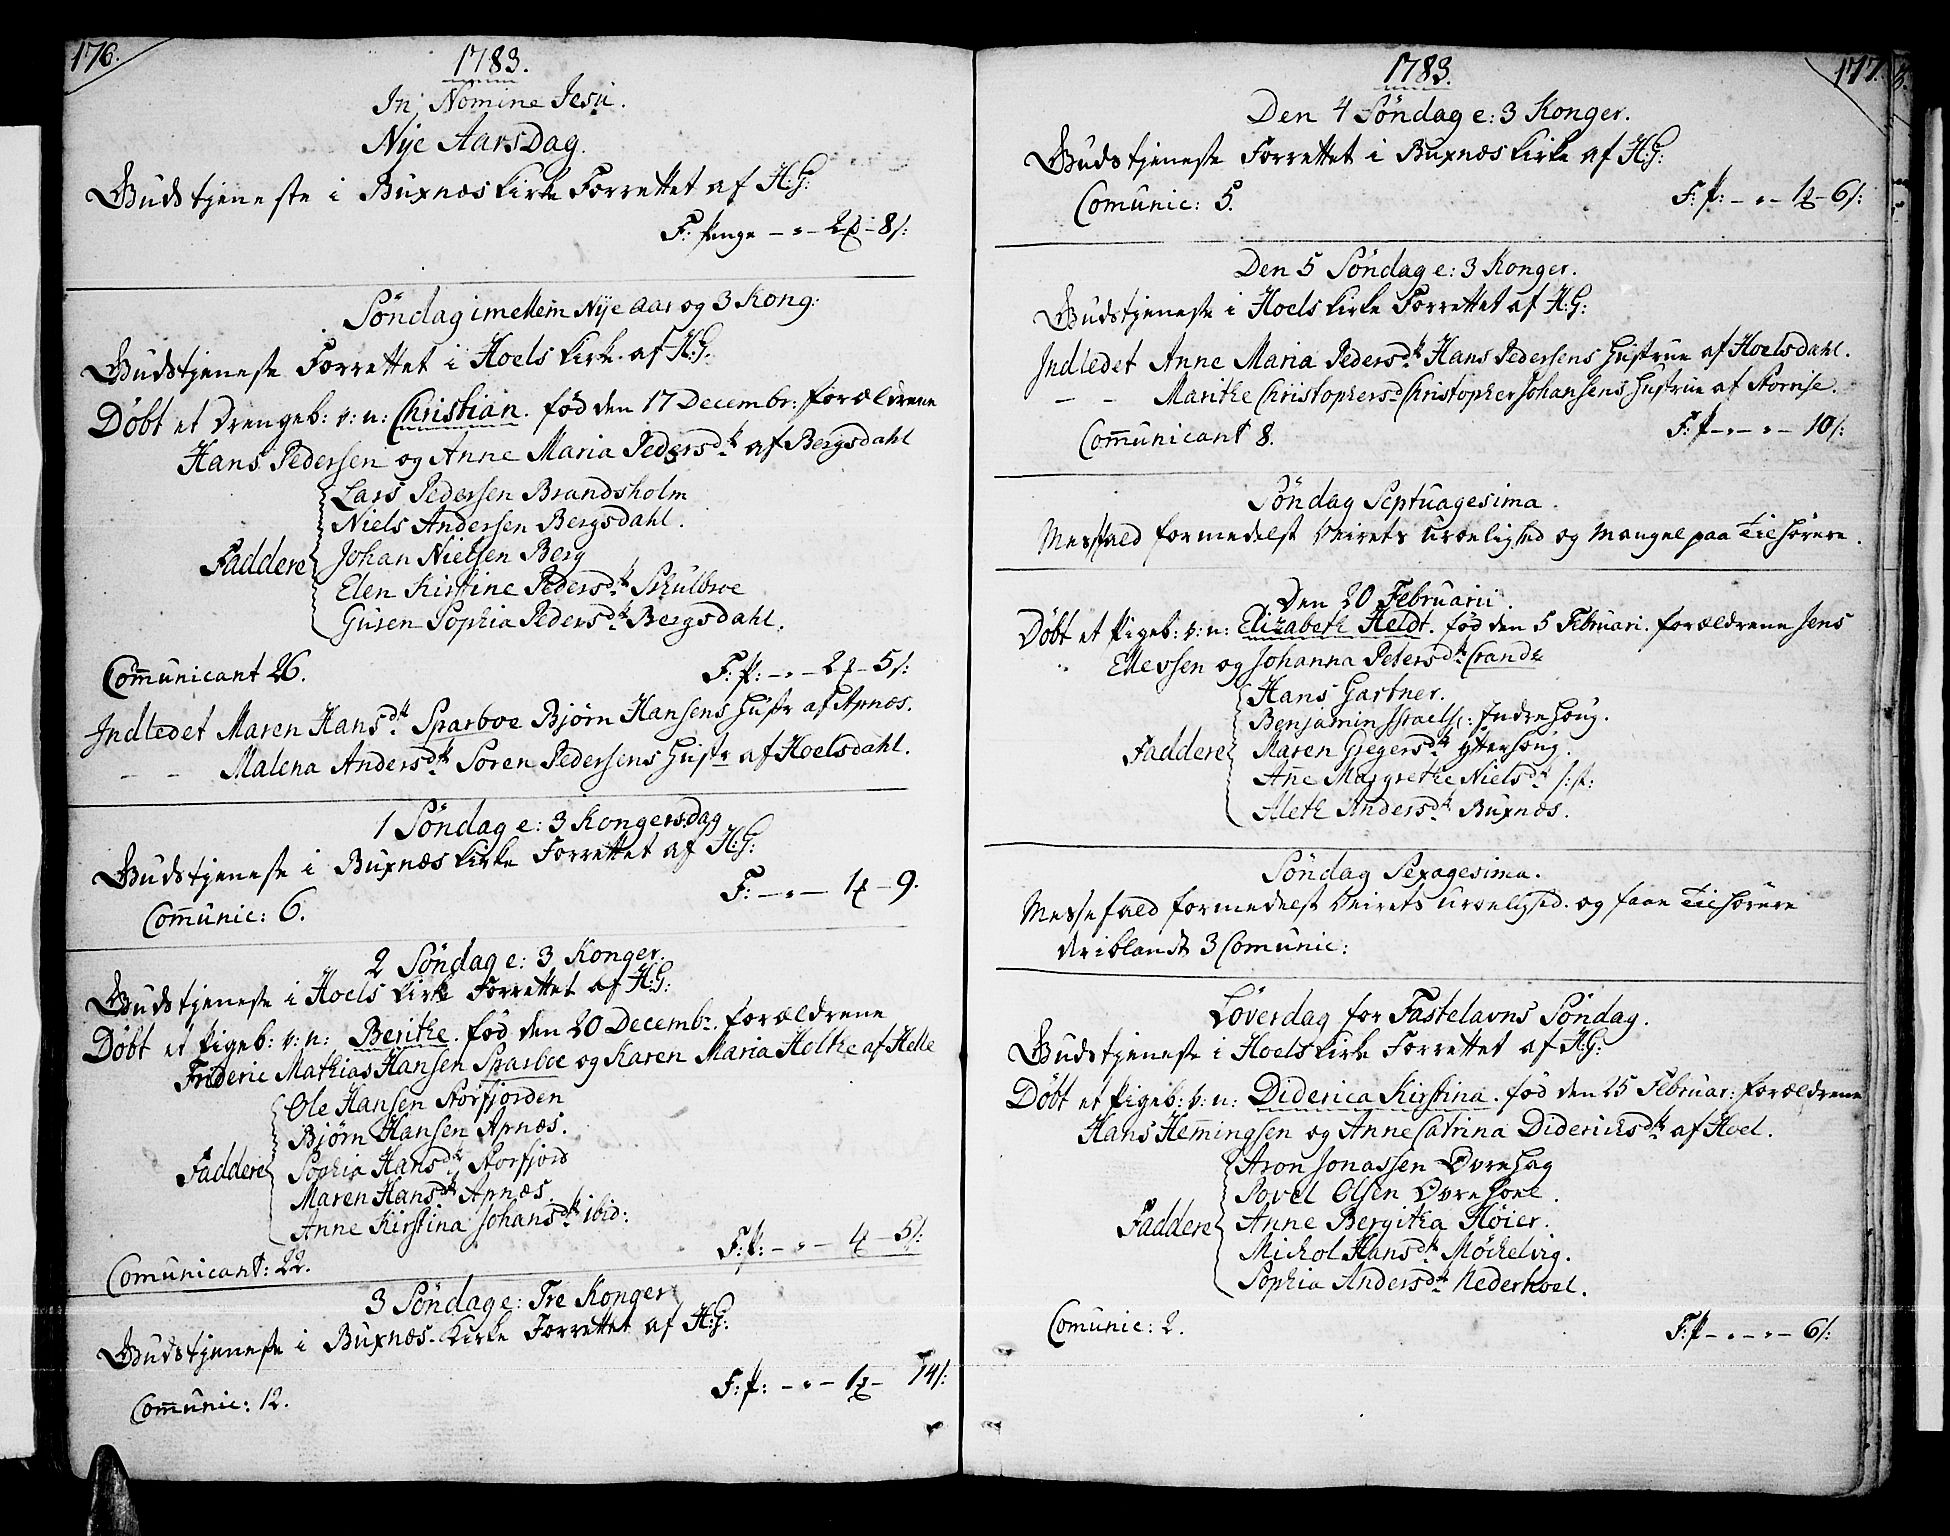 176.
1783.
In Nomine Jesu.
Nye Aars Dag.
Gudstjeneste i Buxnæs Kirke Forrettet af H:G:
F: penge - " - 2 - 8 s:
Søndag imellem Nye Aar og 3 Kong:
Gudstjeneste Forrettet i Hoels Kirke af H:G:
Døbt et Drengeb: v: n: Christian. fød den 17 Decembr: forældrene
Hans Pedersen og Anne Maria Pedersdr. af Bergsdahl
Lars Pedersen Brandsholm
Niels Andersen Bergsdahl.
Faddere Johan Nielsen Berg
Elen Kirstine Pedersdr. Skulbroe
Guren Sophia Pedersdr. Bergsdahl.
Com̄unicant 26.
F: p: - " - 2 - 5 s:
Indledet Maren Hansdr. Sparboe Bjørn Hansens Hustr af Apnæs.
- - Malena Andersdr. Søren Pedersens Hustr af Hoelsdahl.
1 Søndag e: 3 Kongersdag
Gudstjeneste i Buxnæs Kirke Forrettet af H:G:
F: - " - 1 - 9.
Com̄unic: 6.
2 Søndag e: 3 Konger.
Gudstjeneste i Hoels Kirke Forrettet af H:G:
Døbt et Pigeb: v: n: Berithe. fød den 20 Decembr. forældrene
Frideric Mathias Hansen Sparboe og Karen Maria Holthe af Helle
Ole Hansen Storfjorden
Bjørn Hansen Apnæs.
Faddere Sophia Hansdr. Storfjord
Maren Hansdr. Apnæs.
Anne Kirstina Johansdr. ibid:
F: p: - " - 4 - 5 s:
Comunicant: 22.
3 Søndag e: Tre Konger
Gudstjeneste i Buxnæs Kirke Forrettet af H:G:
F: p: - " - 1 - 14 s:
Com̄unic: 12.
177.
1783.
Den 4 Søndag e: 3 Konger.
Gudstjeneste Forrettet i Buxnæs Kirke af H:G:
Comunic: 5.
F: p: - " - 1 - 6 s:
Den 5 Søndag e: 3 Konger.
Gudstjeneste i Hoels Kirke Forrettet af H:G:
Indledet Anne Maria Pedersdr. Hans Pedersens Hustrue af Hoelsdahl.
- - Marithe Christophersd Christopher Johansens Hustrue af Storrise.
Com̄unicant 8.
F: p - " - " - 10 s:
Søndag Septuagesima.
Messfald formedelst Veirets Uroelighed og Mangel paa Tilhørere.
Den 20 Februarii.
Døbt et Pigeb: v: n: Elizabeth Heldt. fød den 5 Februari. forældrene Jens
Ellevsen og Johanna Petersdr. Crandtz
Hans Gartner.
Benjamin Israels: Indrehoug.
Faddere Maren Gregersdr. Ytterhoug.
Añe Margrethe Nielsdr. s: st:
Aleth Andersdr. Buxnæs.
Søndag Sexagesima.
Messefald formedelst Veirets Uroelighed. og faae Tilhørere
deriblandt 3 Comunic:
Løverdag for Fastelavns Søndag.
Gudstjeneste i Hoels Kirke Forrettet af H:G:
Døbt et Pigeb: v: n: Diderica Kirstina. fød den 25 Februar: forældrene
Hans Hem̄ingsen og Anne Catrina Didericksdr. af Hoel.
Aron Jonassen Øvrehag
Povel Olsen Øvrehoel.
Faddere Anne Bergitha Høier.
Michol Hansdr. Møckelvig.
Sophia Andersdr. Nederhoel.
Comunic: 2.
F: p - " - " - 6 s: